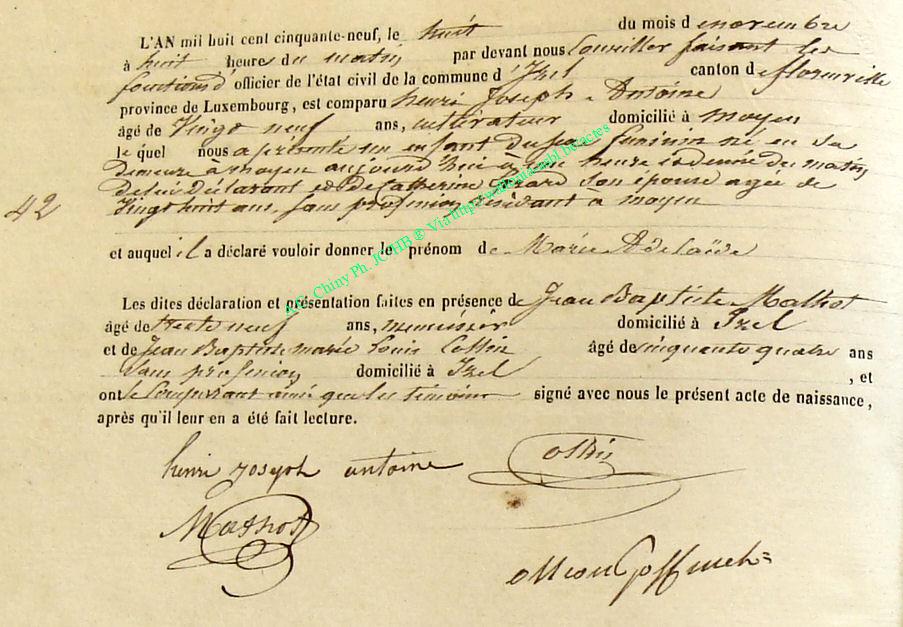 L'AN mil huit cent cinquante-neuf, le huit du mois de novembre
à huit heures du matin par devant nous Conseiller faisant les
fonctions d'officier de l'état civil de la commune d'Izel canton de florenville
province de Luxembourg, est comparu henri Joseph Antoine
âgé de Vingt neuf ans, cultivateur domicilié à moyen
lequel nous a présenté un enfant du sexe feminin né en sa
demeure à moyen aujourd'hui à une heure et demie du matin
de lui déclarant et de Catherine son épouse agée de
Vingt huit ans, sans profession résidant a moyen
42
et auquel il a déclaré vouloir donner le prénom de Marie Adelaïde
Les dites déclaration et présentation faites en présence de Jean Baptiste Mathot
âgé de trente neuf ans, menuisier domicilié à Izel
et de Jean Baptiste marie Louis Collin âgé de cinquante quatre ans
sans profession domicilié à Izel , et
ont le Comparant ainsi que les témoins signé avec nous le présent acte de naissance,
après qu'il leur en a été fait lecture.
henri joseph antoine
Mathot
A.G. Chiny Ph. JCHB ® Via